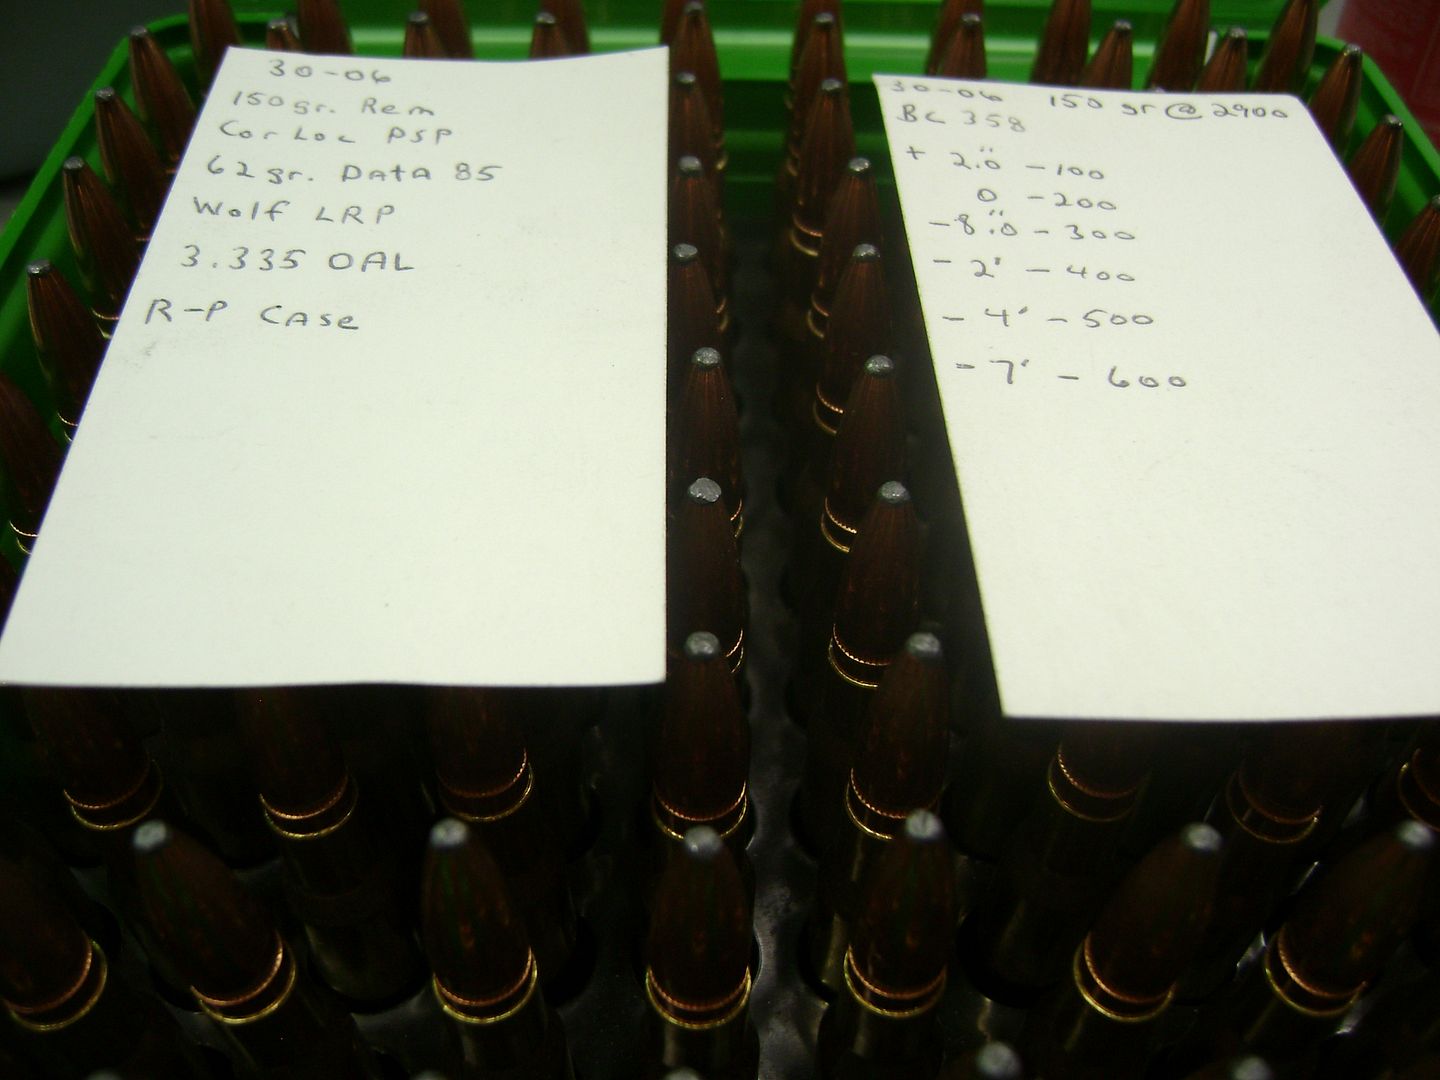 30-06
150gr. Rem
Cor Loc PSP
62gr. Data 85
Wolf LRP
3.335 OAL
R-P Case
30-06 150 gr @ 2900
BC 358
+ 2.0" - 100
0 - 200
-8.0" - 300
- 2' - 400
- 4' - 500
- 7' - 600